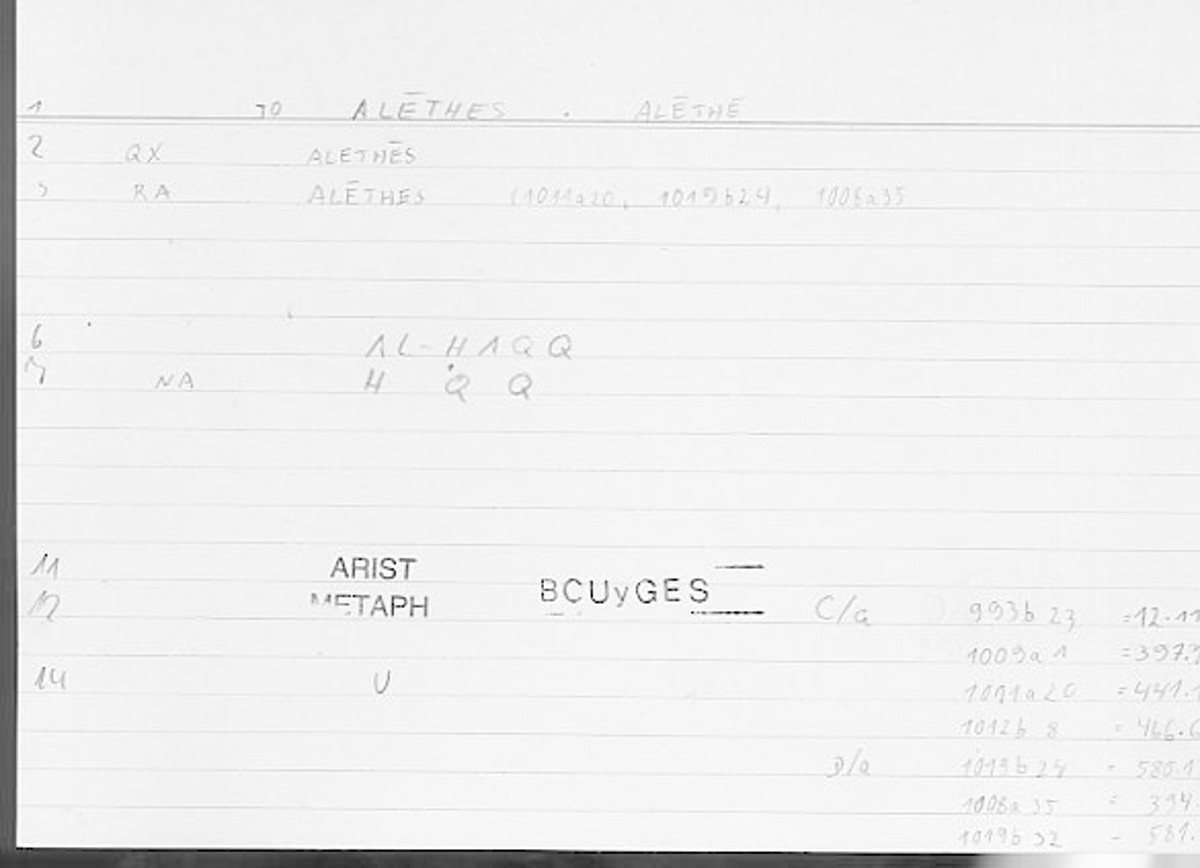 1 TO ALĒTHES . ALĒTHĒ
2 QX ALETHĒS
3 RA ALĒTHES (1011a20, 1019b24, 1008a35
6 AL-ḤAQQ
7 NA Ḥ Q Q
11 ARIST
12 METAPH BCUyGES C/a 993b 23 =12.11
1009a 1 =397.
14 U 1011a20 =441.1
1012b 8 = 466.6
D/a 1019b 24 = 580.1
1008a 35 = 394
1019b 32 = 581.